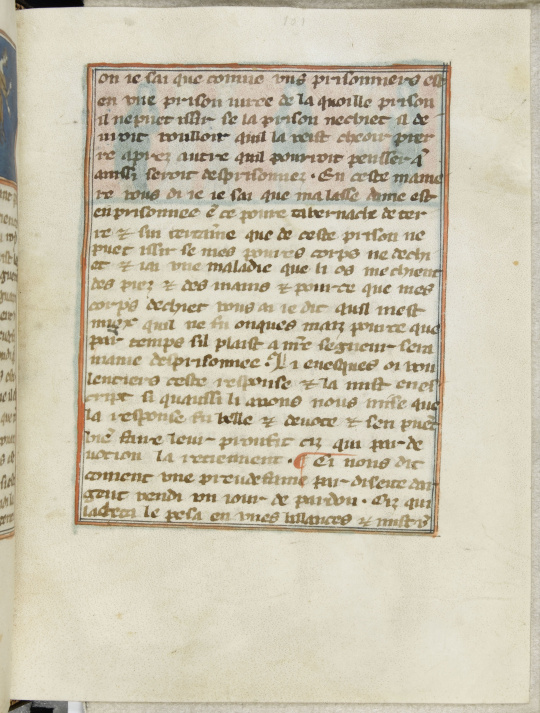 on ie sai que comme uns prisonniers est
en une prison muree de la quoille prison
il ne puet issir se la prison ne chiet il de
uroit voulloir quil la veist cheoir pier
re aprez autre quil pourroit penser q̄
ainssi seroit desprisonnez. En ceste manie
re vous di ie ie sai que ma lasse dame est
enprisonnee ē ce poure tabernacle de ter
re & sui certaine que de ceste prison ne
puet issir se mes poures corps ne dechi
et & iai une maladie que li os me chient
des piez & des mains & pour ce que mes
corps dechiet vous ai ie dit quil mest
miex quil ne fu onques maiz pour ce que
par temps sil plaist a mr̄e seigneur sera
mame desprisonnee. Li euesques oi vou
lentiers ceste response & la mist en es
cript si quaussi li auons nous mise que
la response fu belle & deuote & sen puēt
biē faire leur proufit ciz qui par de
uocion la retiennent. Ci nous dit
coment une preudefame par disete dar
gent vendi un iour de pardon. Ciz qui
lacheta le pesa en unes balances & mist